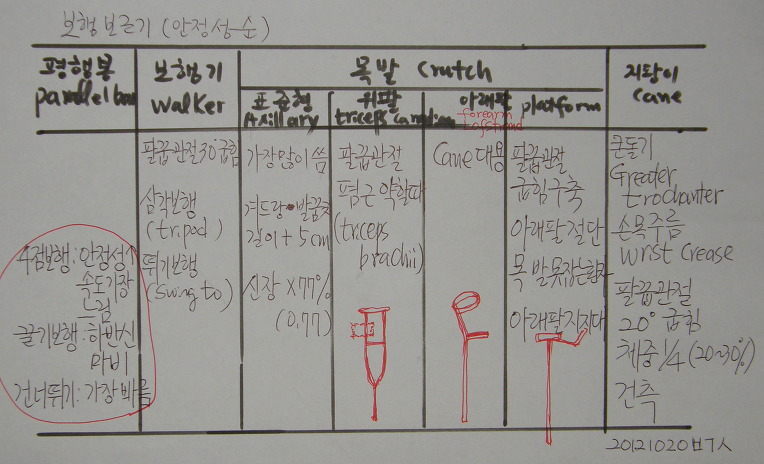 보행보조기 (안정성 순)
평행봉
parallel bar
보행기
walker
목발 crutch
표준형
Axillary
위팔
triceps canadian
아래팔
forearm
Lofstrand
platform
지팡이
cane
4점보행: 안정성↑
속도가장
느림
끌기보행: 하반신
마비
건너뛰기: 가장 빠름
팔꿉관절30°굽힘
삼각보행
(tripod)
뛰기보행
(swing to)
가장많이 씀
겨드랑•발꿈치
길이+5cm
신장 x77%
(0.77)
팔꿉관절
폄근 약할때
(triceps
brachii)
Cane대용
팔꿉관절
굽힘구축
아래팔 절단
목발못잡는환자
아래팔지지대
큰돌기
Greater
trochanter
손목주름
wrist crease
팔꿉관절
20°굽힘
체중1/4 (20~30%)
건측
20121020